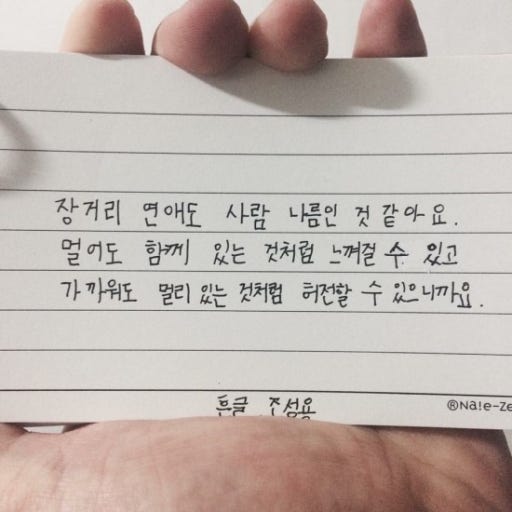 장거리 연애도 사람 나름인 것 같아요.
멀어도 함께 있는 것처럼 느껴질 수 있고
가까워도 멀리 있는 것처럼 허전할 수 있으니까요.
흔글 조성용
®Na!e-Ze